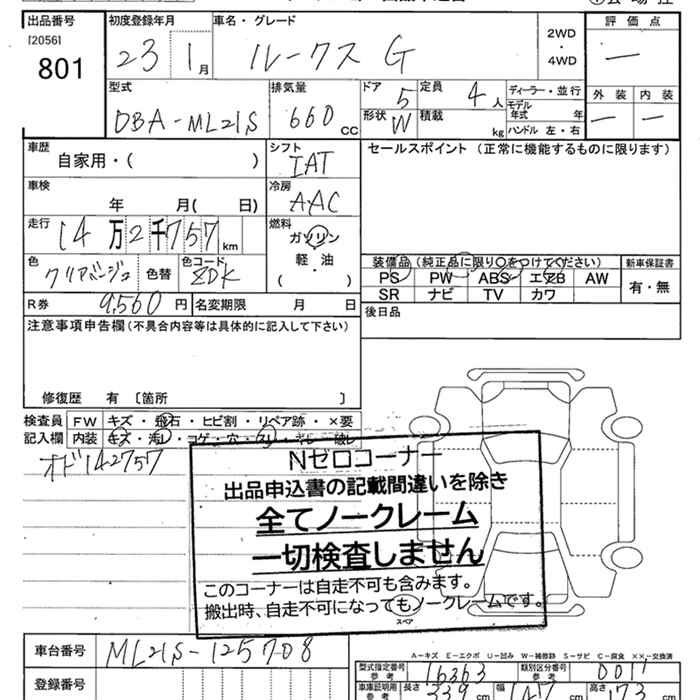 出品番号 初度登録年月 車名・グレード 2WD・4WD 評価点
[2056]
801 23 1月 ルークス G
型式 排気量 ドア 5 定員 4人 ディーラー・並行 外装 内装
DBA-ML21S 660cc 形状 W 積載 kg モデル年式 年 ハンドル 左・右
車歴 シフト セールスポイント (正常に機能するものに限ります)
自家用・( ) IAT
車検 冷房
年 月( 日) AAC
走行 燃料
14万2千757km ガソリン
軽・油
( )
色 色替 色コード 装備品 (純正品に限り○をつけてください) 新車保証書
クリアベージュ ZDK PS PW ABS エアB AW 有・無
SR ナビ TV カワ
R券 9,560円 名変期限 月 日 後日品
注意事項申告欄 (不具合内容等は具体的に記入して下さい)
修復歴 有 〔箇所 〕
検査員 FW キズ・飛石・ヒビ割・リペア跡・×要
記入欄 内装 キズ・汚レ・コゲ・穴・スレ・キレ・破レ
オド142757
Nゼロコーナー
出品申込書の記載間違いを除き
全てノークレーム
一切検査しません
このコーナーは自走不可も含みます。
搬出時、自走不可になってもノークレームです。
スペア
A-キズ E-エクボ U-凹み W-補修跡 S-サビ C-腐食 ××-交換済
車台番号 ML21S-125708 型式指定番号 参考 16363 類別区分番号 参考 0011
登録番号 車庫証明用 参考 長さ 339cm 幅 147cm 高さ 173cm